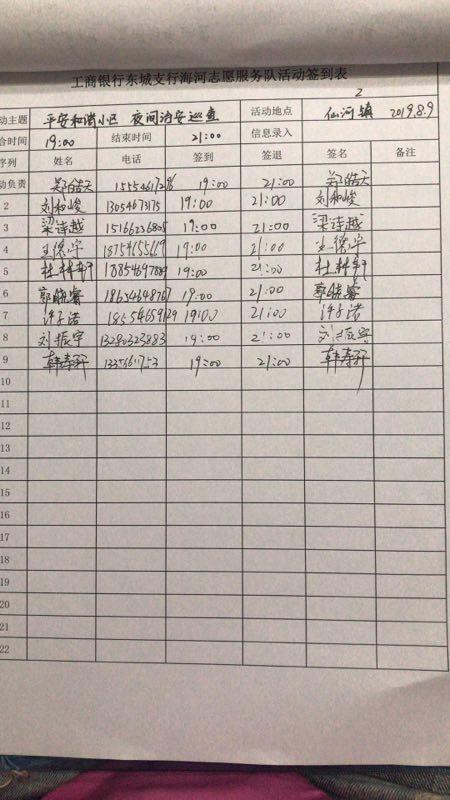 工商银行东城支行海河志愿服务队活动签到表
2
动主题 平安和谐小区 夜间治安巡查 活动地点 仙河镇 2019.8.9
合时间 19:00 结束时间 21:00 信息录入
序列 姓名 电话 签到 签退 签名 备注
动负责 郑皓天 19:00 21:00 郑皓天
2 刘和峻 13054673175 19:00 21:00 刘和峻
3 梁诗越 15166236805 19:00 21:00 梁诗越
4 王德宇 18754655619 19:00 21:00 王德宇
5 杜林轩 19:00 21:00 杜林轩
6 郭晓睿 18654648767 19:00 21:00 郭晓睿
7 许子诺 18554659129 19:00 21:00 许子诺
8 刘振宇 13280323883 19:00 21:00 刘振宇
9 韩寿羿 19:00 21:00 韩寿羿
10
11
12
13
14
15
16
17
18
19
20
21
22